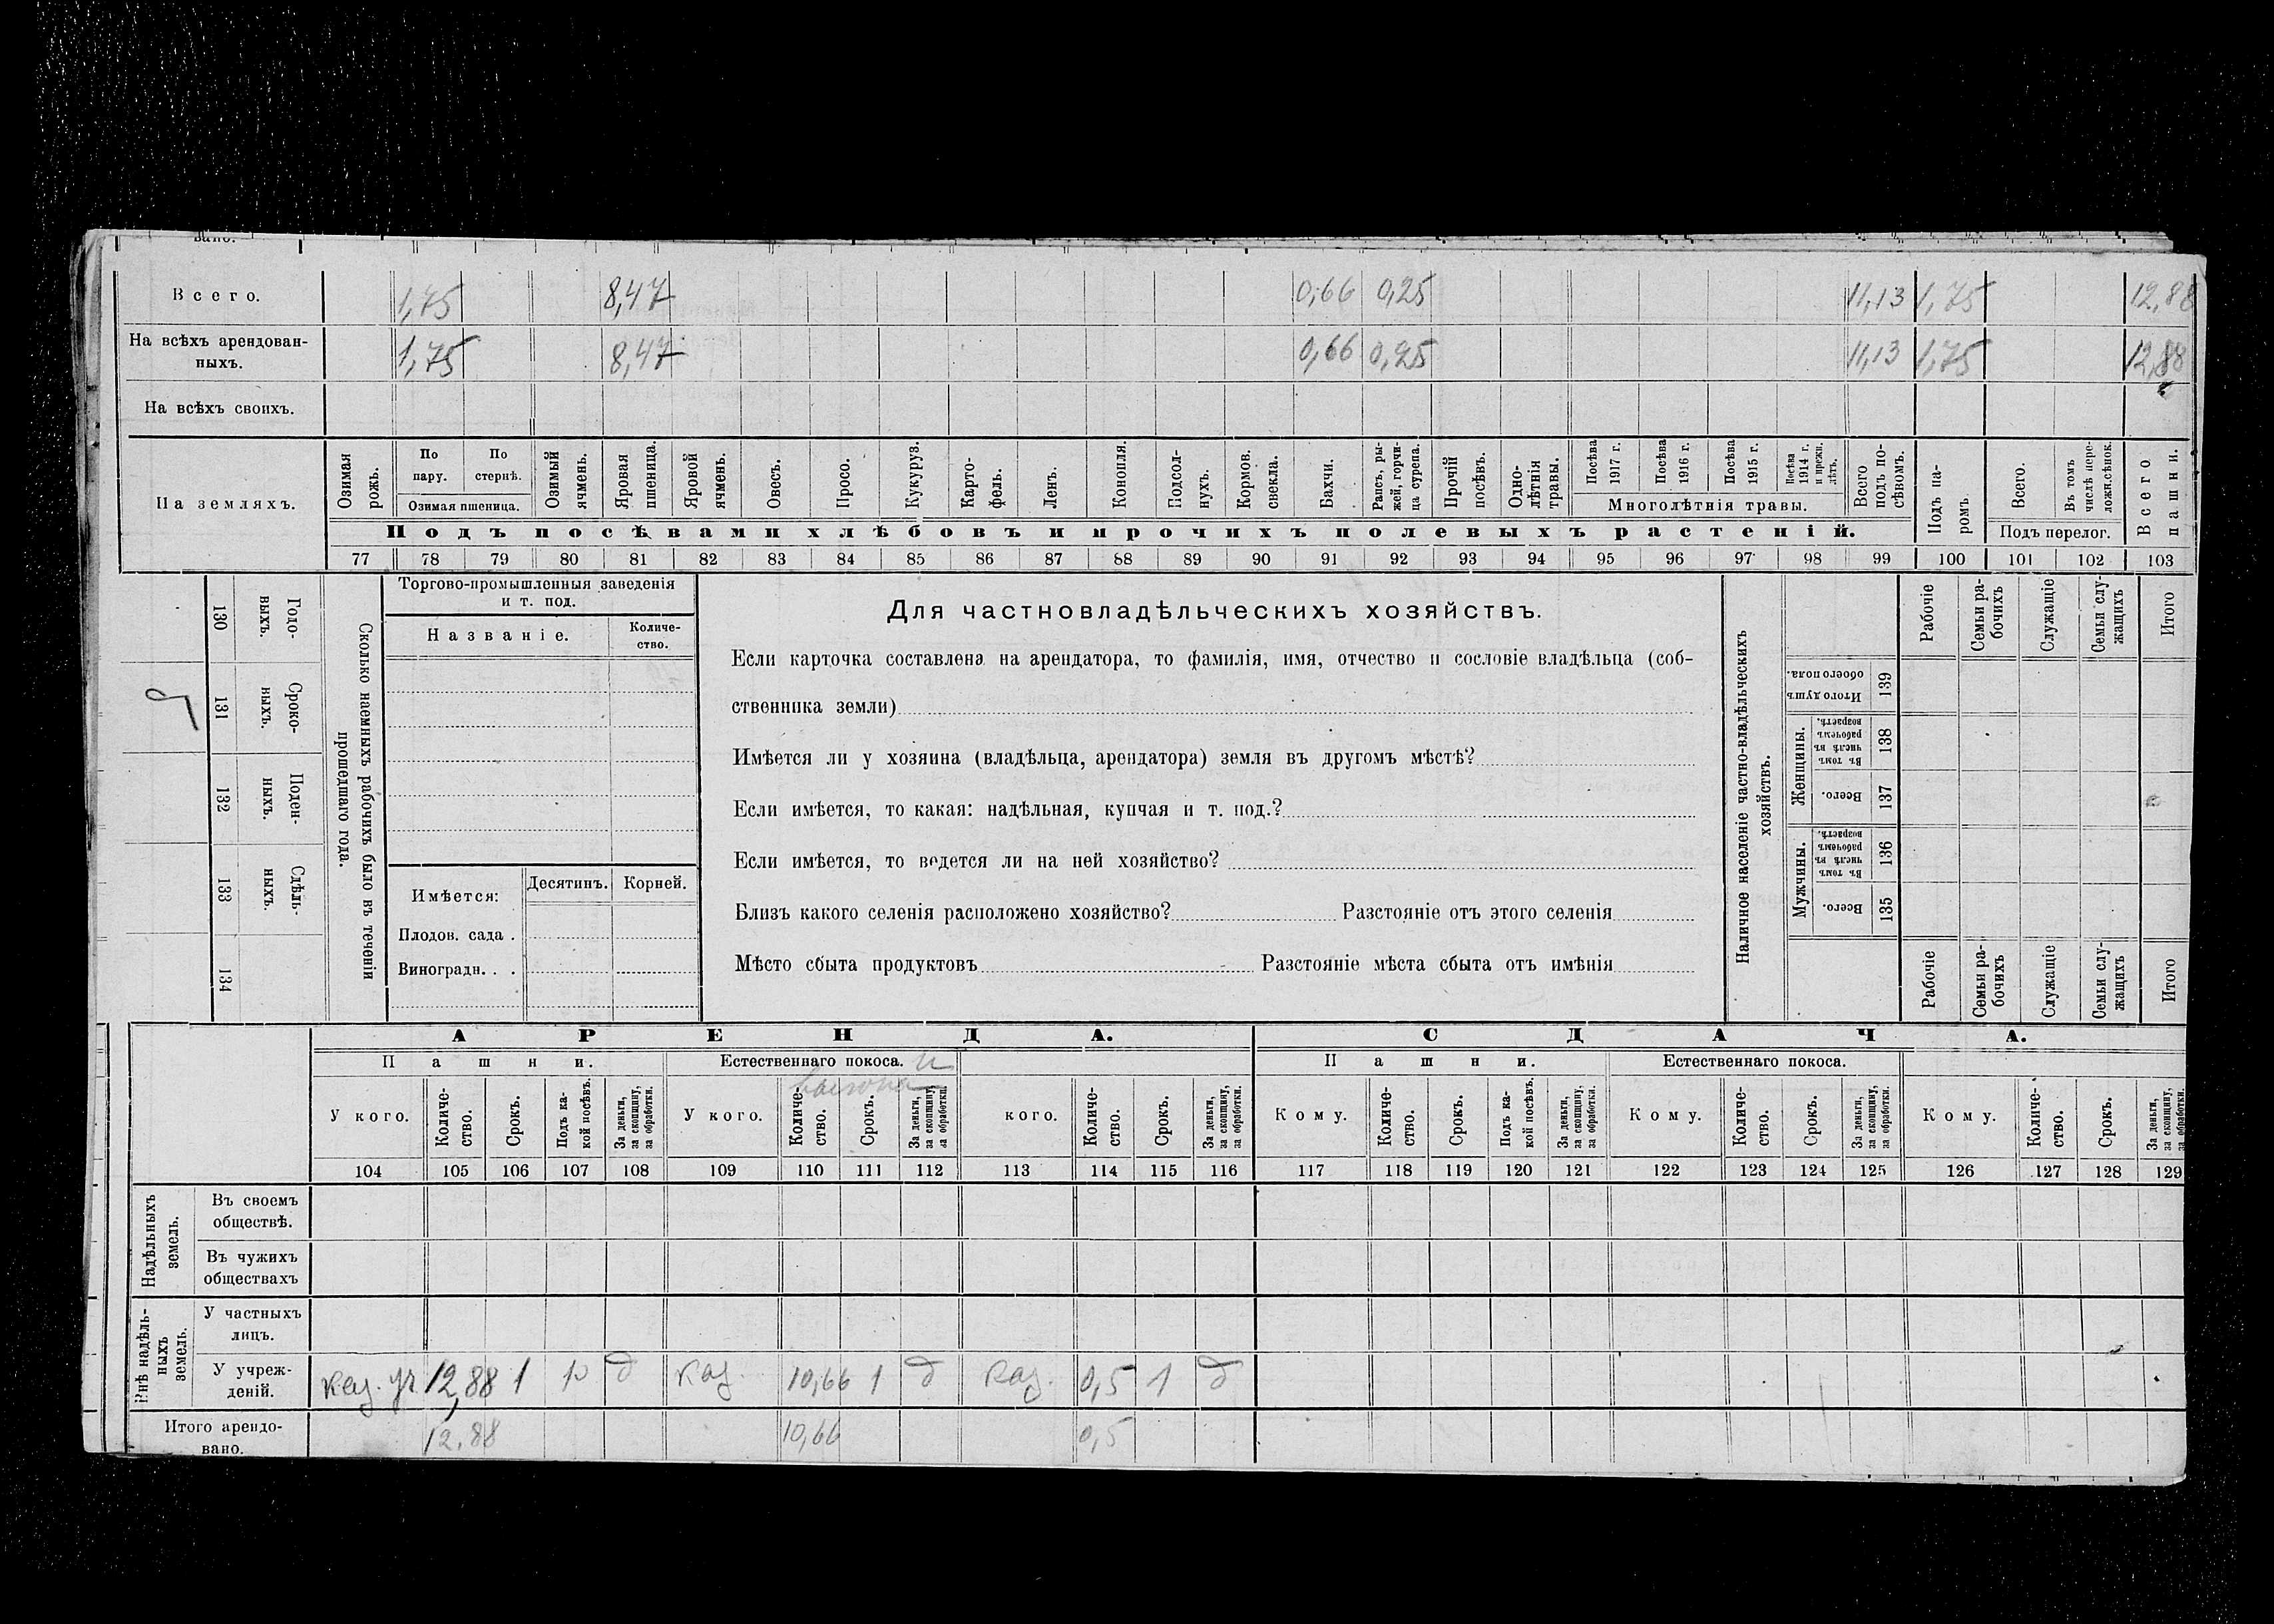 вано.
Всего. 1,75 8,47 0,66 0,25 11,13 1,75 12,88
На всѣхъ арендован-
ныхъ. 1,75 8,47 0,66 0,25 11,13 1,75 12,88
На всѣхъ своихъ.
На земляхъ.
Озимая рожь.
По пару.
По стернѣ.
Озимая пшеница.
Озимый ячмень.
Яровая пшеница.
Яровой ячмень.
Овесъ.
Просо.
Кукуруз.
Карто-
фель.
Ленъ.
Конопля.
Подсол-
нухъ.
Кормов. свекла.
Бахчи.
Рапсъ, ры-
жей, горчи-
ца сурепа.
Прочій посѣвъ.
Одно-
лѣтнія
травы.
Посѣва 1917 г.
Посѣва 1916 г.
Посѣва 1915 г.
Посѣва 1914 г. и прежн. лѣтъ.
Многолѣтнія травы.
Всего подъ по-
сѣвомъ.
Подъ па-
ромъ
Всего.
Въ томъ числѣ пере-
ложн.сѣнок.
Подъ перелог.
Всего пашни.
Подъ посѣвами хлѣбовъ и прочихъ полевыхъ растеній.
77 78 79 80 81 82 83 84 85 86 87 88 89 90 91 92 93 94 95 96 97 98 99 100 101 102 103
130 Годо-
выхъ.
131 Сроко-
ныхъ.
132 Поден-
ныхъ.
133 Сдѣль-
ныхъ.
134
Сколько наемныхъ рабочихъ было въ теченіи
прошедшаго года.
Торгово-промышленныя заведенія
и т. под.
Названіе.
Количе-
ство.
Имѣется:
Десятинъ.
Корней.
Плодов. сада .
Виноградн. . .
Для частновладѣльческихъ хозяйствъ.
Если карточка составлена на арендатора, то фамилія, имя, отчество и сословіе владѣльца (соб-
ственника земли)
Имѣется ли у хозяина (владѣльца, арендатора) земля въ другомъ мѣстѣ?
Если имѣется, то какая: надѣльная, купчая и т. под.?
Если имѣется, то ведется ли на ней хозяйство?
Близъ какого селенія расположено хозяйство? Разстояніе отъ этого селенія
Мѣсто сбыта продуктовъ Разстояніе мѣста сбыта отъ имѣнія
Наличное населеніе частно-владѣльческихъ
хозяйствъ.
Рабочіе
Семьи ра-
бочихъ
Служащіе
Семьи слу-
жащихъ
Итого
Итого душъ
обоего пола. 139
Женщины.
Въ томъ числѣ въ рабочемъ возрастѣ. 138
Всего. 137
Мужчины.
Въ томъ числѣ въ рабочемъ возрастѣ. 136
Всего. 135
Рабочіе
Семьи ра-
бочихъ
Служащіе
Семьи слу-
жащихъ
Итого
АРЕНДА. СДАЧА.
Пашни. Естественнаго покоса. и Пашни. Естественнаго покоса.
У кого.
Количе-
ство.
Срокъ.
Подъ ка-
кой посѣвъ.
За деньги,
за скопщину,
за обработки.
У кого.
Количе-
ство.
Срокъ.
За деньги,
за скопщину,
за обработки.
кого.
Количе-
ство.
Срокъ.
За деньги,
за скопщину,
за обработки.
Кому.
Количе-
ство.
Срокъ.
Подъ ка-
кой посѣвъ.
За деньги,
за скопщину,
за обработки.
Кому.
Количе-
ство.
Срокъ.
За деньги,
за скопщину,
за обработки.
Кому.
Количе-
ство.
Срокъ.
За деньги,
за скопщину,
за обработки.
104 105 106 107 108 109 110 111 112 113 114 115 116 117 118 119 120 121 122 123 124 125 126 127 128 129
Надѣльныхъ
земель.
Въ своемъ
обществѣ.
Въ чужихъ
обществахъ
Внѣ надѣль-
ныхъ
земель.
У частныхъ
лицъ.
У учреж-
деній. Каз. уч 12,88 1 р д Каз. 10,66 1 д Каз. 0,5 1 д
Итого арендо-
вано. 12,88 10,66 0,5